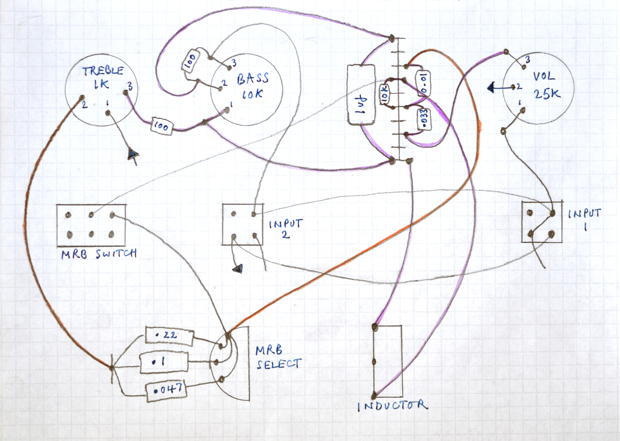 TREBLE
1K
2
1
3
100
100
BASS
10K
3
2
1
1µf
10K
0.01
.033
VOL
25K
3
2
1
MRB SWITCH
INPUT
2
INPUT
1
.22
.1
.047
MRB
SELECT
INDUCTOR